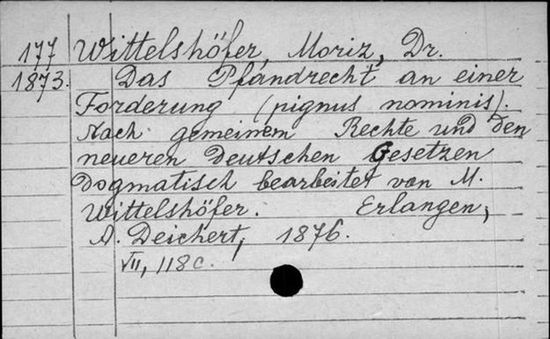 177 Wittelshöfer, Moriz, Dr.
1873. Das Pfandrecht an einer
Forderung (pignus nominis).
Nach gemeinem Rechte und den
neueren Deutschen Gesetzen
Dogmatisch bearbeitet von M.
Wittelshöfer. Erlangen,
A. Deichert, 1876.
VII, 118 c.